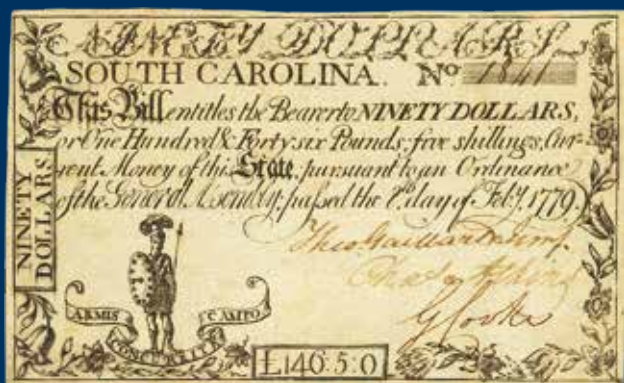 NINETY DOLLARS
SOUTH CAROLINA. No 1841
This Bill entitles the Bearer to NINETY DOLLARS,
or One Hundred & Forty six Pounds, five shillings, Cur-
rent Money of this State, pursuant to an Ordinance
of the General Assembly, passed the 8th day of Feby. 1779.
NINETY
DOLLARS
G Cooke
ARMIS CAMPO
£146:5:0